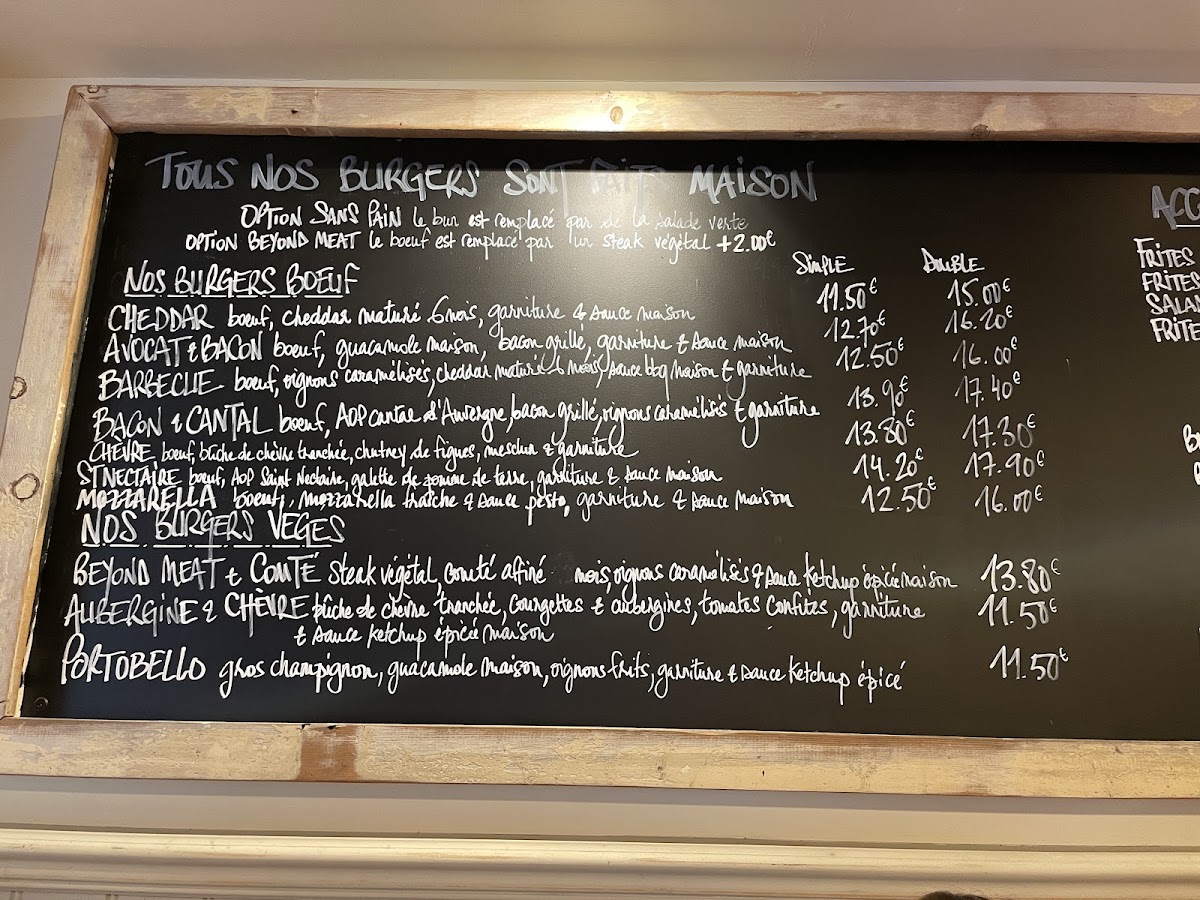 TOUS NOS BURGERS SONT FAITS MAISON
OPTION SANS PAIN le bun est remplacé par de la salade verte
OPTION BEYOND MEAT le boeuf est remplacé par un steak végétal +2.00€
SIMPLE DOUBLE
NOS BURGERS BOEUF
CHEDDAR boeuf, cheddar maturé 6 mois, garniture & sauce maison 11.50€ 15.00€
AVOCAT & BACON boeuf, guacamole maison, bacon grillé, garniture & sauce maison 12.70€ 16.20€
BARBECUE boeuf, oignons caramélisés, cheddar maturé 6 mois, sauce bbq maison & garniture 12.50€ 16.00€
BACON & CANTAL boeuf, AOP cantal d'Auvergne, bacon grillé, oignons caramélisés & garniture 13.90€ 17.40€
CHÈVRE boeuf, bûche de chèvre tranchée, chutney de figues, mesclun & garniture 13.80€ 17.30€
ST NECTAIRE boeuf, AOP Saint Nectaire, galette de pomme de terre, garniture & sauce maison 14.20€ 17.90€
MOZZARELLA boeuf, mozzarella fraîche & sauce pesto, garniture & sauce maison 12.50€ 16.00€
NOS BURGERS VEGES
BEYOND MEAT & COMTÉ steak végétal, comté affiné mois, oignons caramélisés & sauce ketchup épicée maison 13.80€
AUBERGINE & CHÈVRE bûche de chèvre tranchée, courgettes & aubergines, tomates confites, garniture 11.50€
& sauce ketchup épicée maison
PORTOBELLO gros champignon, guacamole maison, oignons frits, garniture & sauce ketchup épicé 11.50€
ACC
FRITES
FRITES
SALA
FRITE